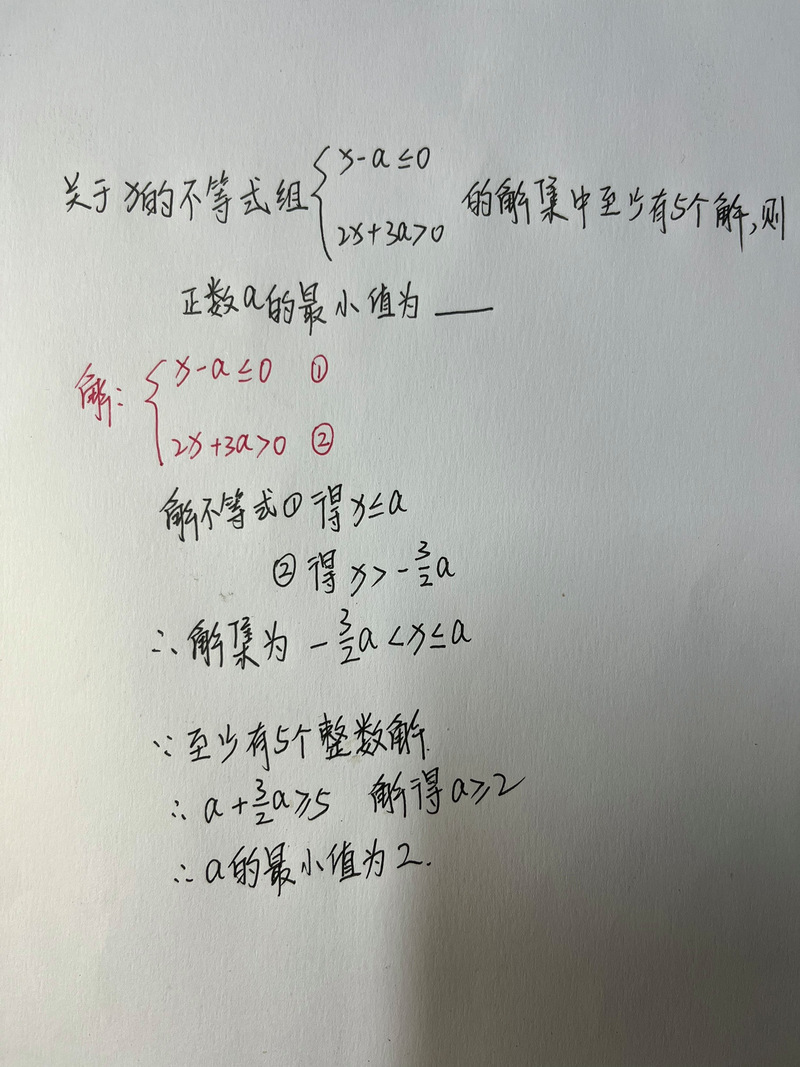 关于x的不等式组{x-a≤0
2x+3a>0 的解集中至少有5个解,则
正数a的最小值为 ___
解: {x-a≤0 ①
2x+3a>0 ②
解不等式①得x≤a
②得x>-3/2a
∴解集为 -3/2a<x≤a
∵至少有5个整数解.
∴a+3/2a≥5 解得a≥2
∴a的最小值为2.